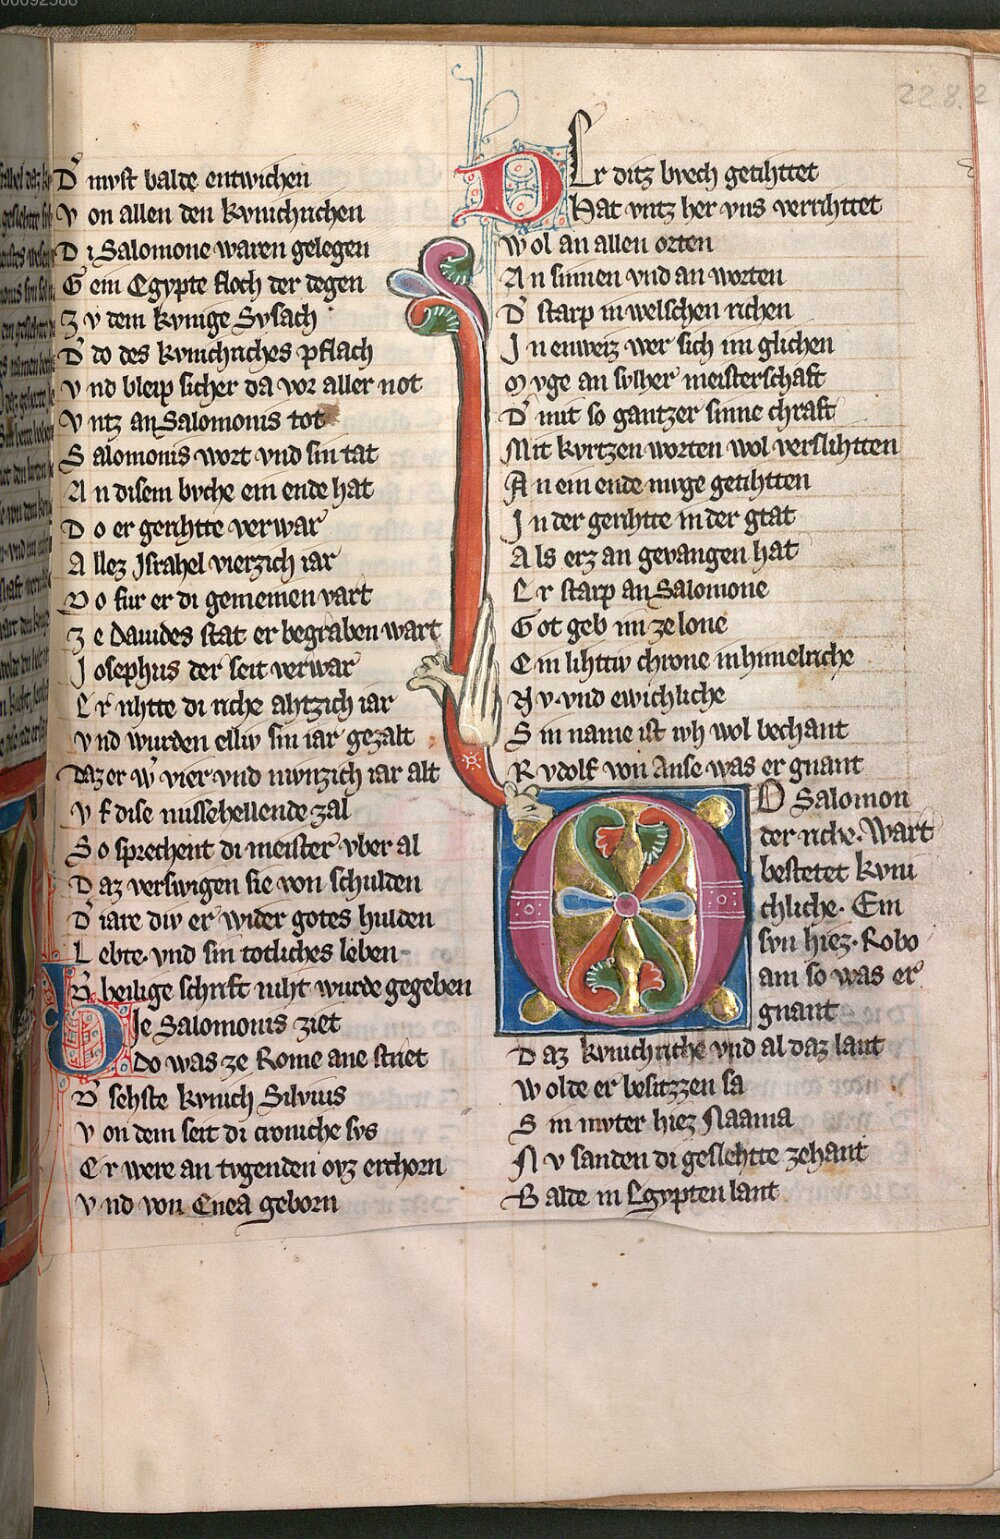 00092588
228.2
D' mvst balde entwichen
V on allen den kvnichrichen
D i Salomone waren gelegen
G ein Egypte floch der degen
Z v dem kvnige Svsach
D' do des kvnichriches pflach
V nd bleip sicher da vor aller not
V ntz an Salomonis tot
S alomonis wort vnd sin tat
A n disem bvche ein ende hat
D o er gerihtte verwar
A llez Israhel vierzich iar
D o fur er di gemeinen vart
Z e Dauides stat er begraben wart
J osephus der seit verwar
E r rihtte di riche ahtzich iar
V nd wurden elliv sin iar gezalt
Daz er w' vier vnd nivnzich iar alt
V f dise missehellende zal
S o sprechent di meister vber al
D az verswigen sie von schulden
D' iare div er wider gotes hulden
L ebte. vnd sin totliches leben
D' heilige schrift niht wurde gegeben
Bie Salomonis ziet
Do was ze Rome ane striet
D' sehste kvnich Silvius
V on dem seit di cronicke svs
E r were an tvgenden vz erchorn
V nd von Enea geborn
DEr ditz bvech getihttet
Hat vntz her vns verrihttet
W ol an allen orten
A n sinnen vnd an worten
D' starp in welschen richen
J n enweiz wer sich im glichen
M vge an svlher meisterschaft
D' mit so gantzer sinne chraft
Mit kvrtzen worten wol verslihtten
A n ein ende mvge getihtten
J n der gerihtte in der gtat
A ls erz an gevangen hat
E r starp an Salomone
G ot geb im ze lone
E in lihttiv chrone in himelriche
N v. vnd ewichliche
S in name ist iwh wol bechant
R vdolf von Anse was er gnant
DO Salomon
der riche. Wart
bestetet kvni
chliche. Ein
svn hiez. Robo
am so was er
gnant
D az kvnichriche vnd al daz lant
W olde er besitzzen sa
S in mvter hiez Naama
N v sanden di geslehtte zehant
B alde in Egypten lant